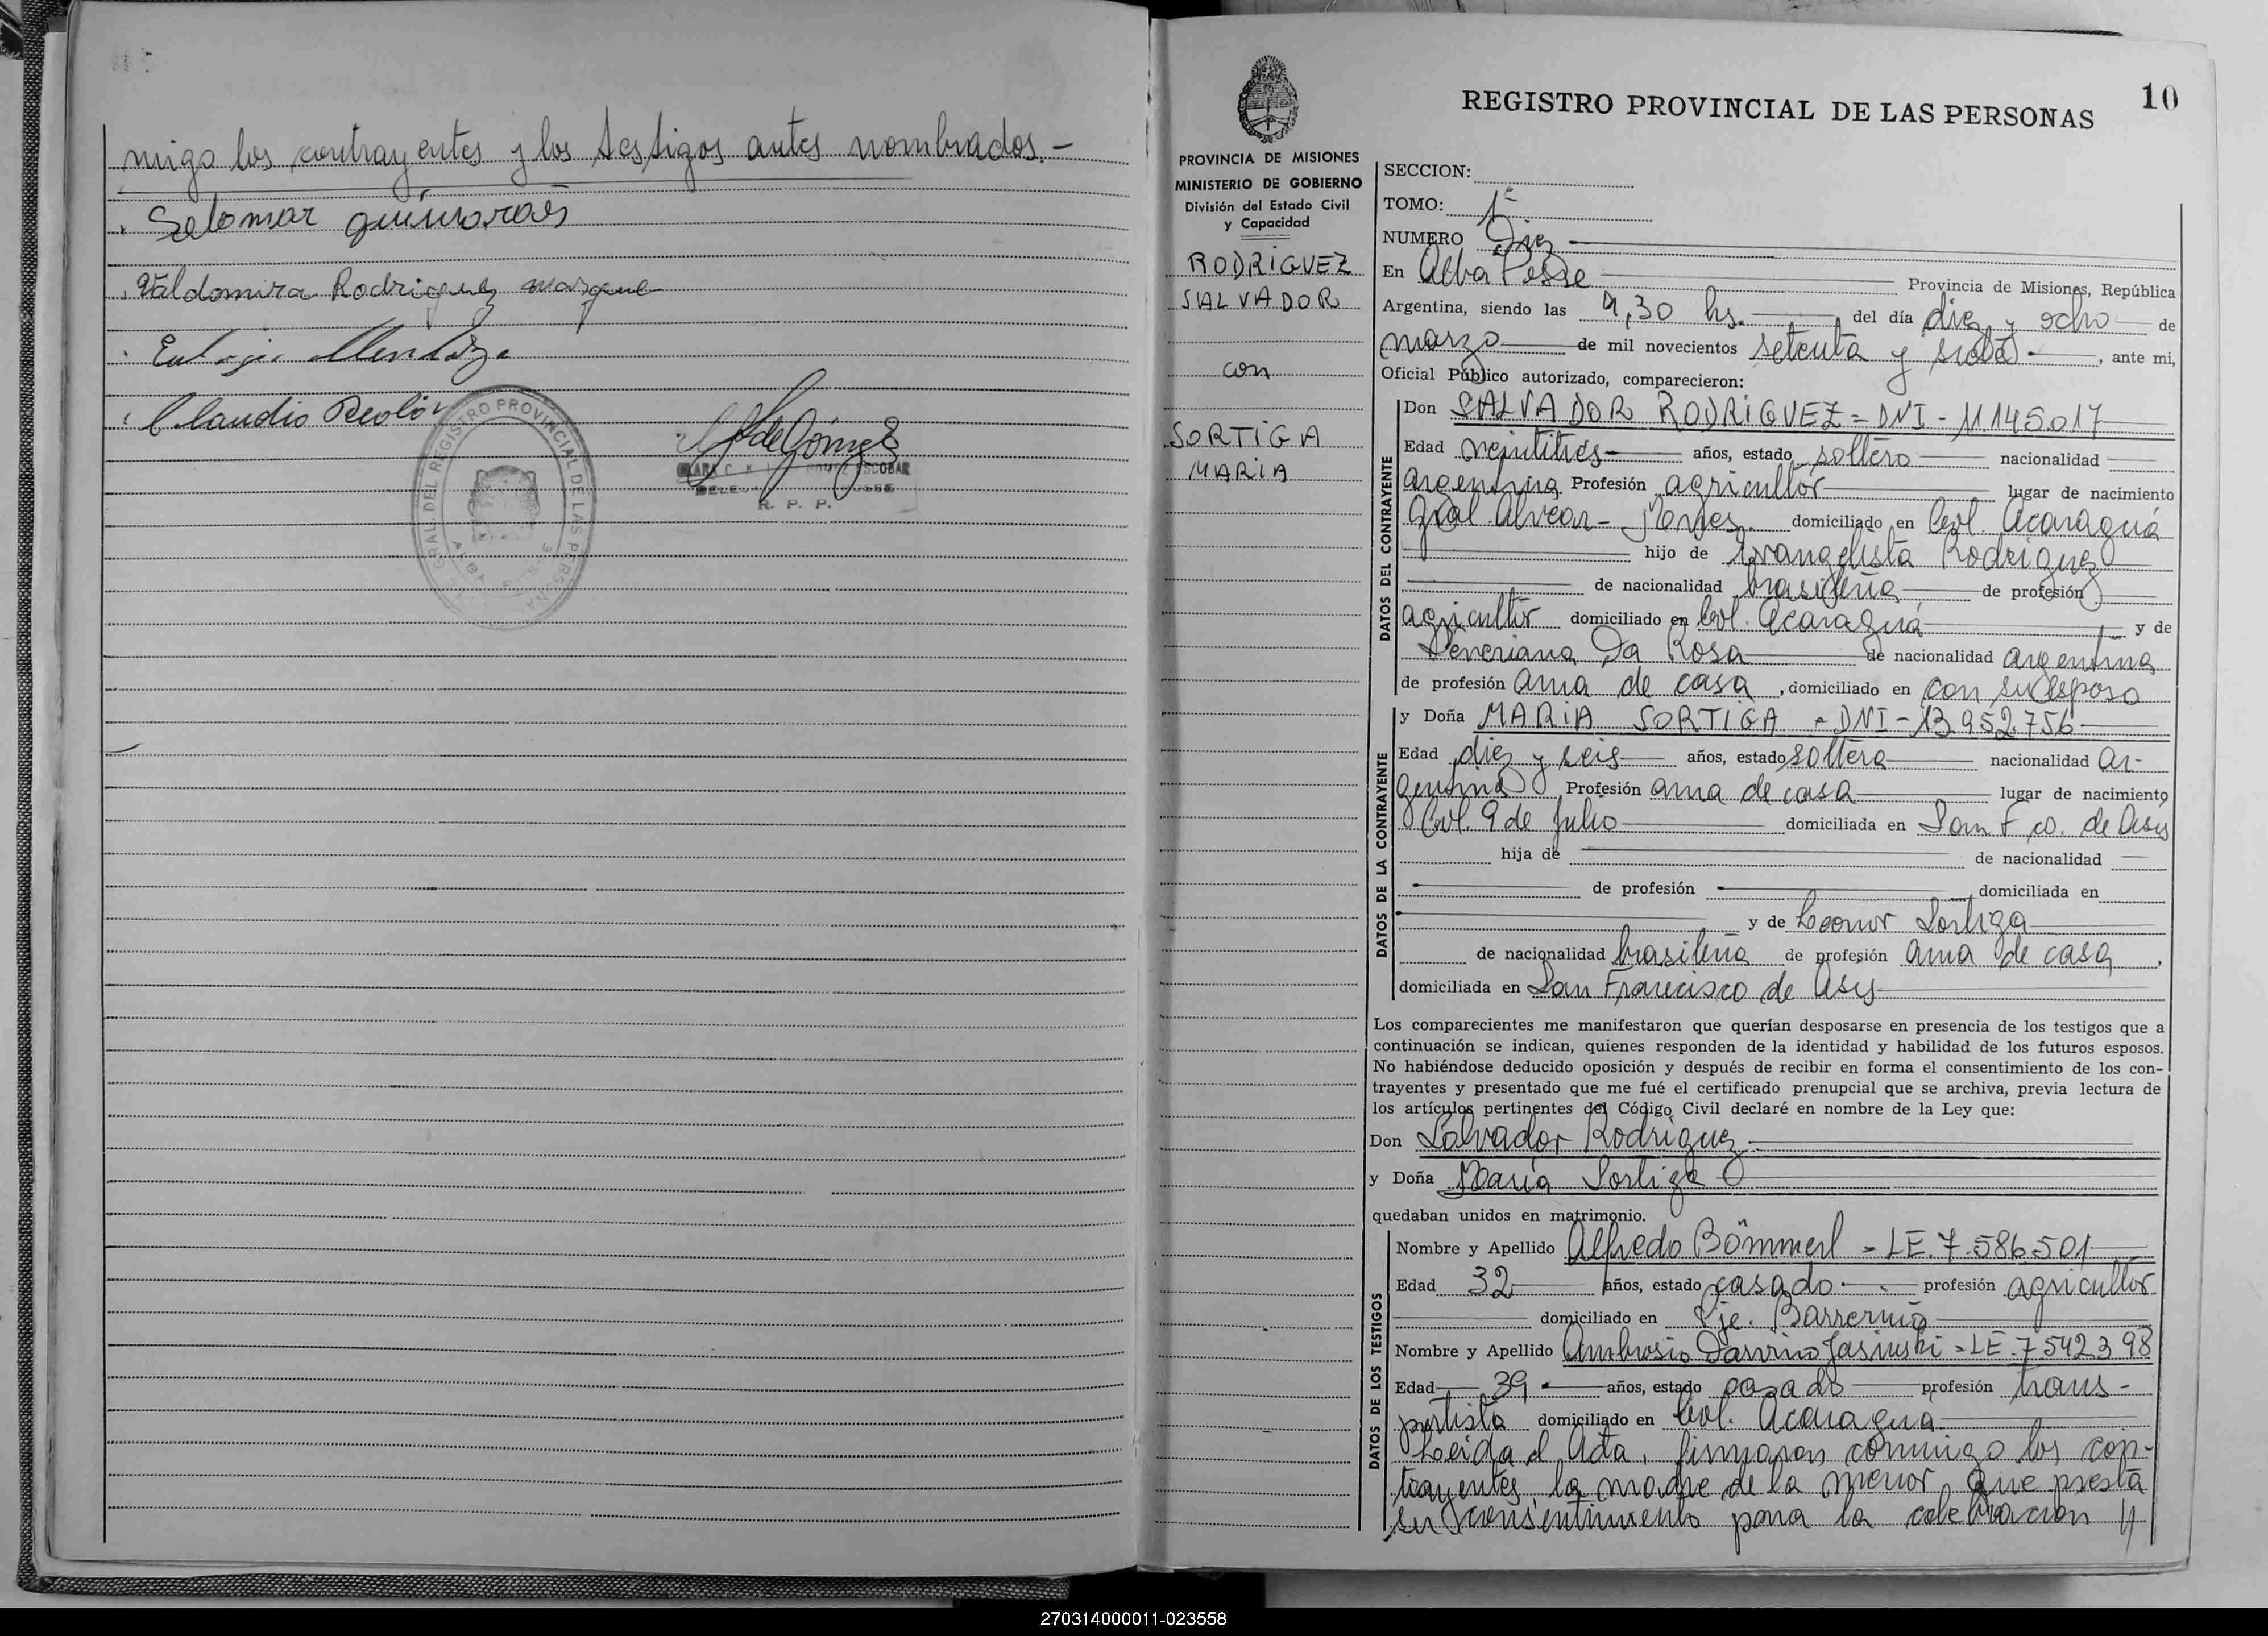 migo los contrayentes y los testigos antes nombrados.-
Selomar guimoraes
Valdomira Rodriguez marque
Eulogio Mendoza
Claudio
GRAL. DEL REGISTRO PROVINCIAL DE LAS PERSONAS
ALBA POSSE
R. P. P.
10
REGISTRO PROVINCIAL DE LAS PERSONAS
PROVINCIA DE MISIONES
MINISTERIO DE GOBIERNO
División del Estado Civil
y Capacidad
RODRIGUEZ
SALVADOR
con
SORTIGA
MARIA
SECCION:
TOMO: 1º
NUMERO Diez
En Alba Posse Provincia de Misiones, República
Argentina, siendo las 9,30 hs. del día diez y ocho de
marzo de mil novecientos setenta y siete, ante mi,
Oficial Público autorizado, comparecieron:
DATOS DEL CONTRAYENTE
Don SALVADOR RODRIGUEZ = DNI - 11145.017
Edad veintitrés años, estado soltero nacionalidad
argentina Profesión agricultor lugar de nacimiento
Gral Alvear - Mnes. domiciliado en Col. Acaraguá
hijo de Evangelista Rodriguez
de nacionalidad brasileña de profesión
agricultor domiciliado en Col. Acaraguá y de
Veneriana Da Rosa de nacionalidad argentina
de profesión ama de casa, domiciliado en con su esposo
DATOS DE LA CONTRAYENTE
y Doña MARIA SORTIGA - DNI - 13.952.756
Edad diez y seis años, estado soltera nacionalidad ar-
gentina Profesión ama de casa lugar de nacimiento
Col. 9 de Julio domiciliada en San Fco. de Asis
hija de de nacionalidad
de profesión domiciliada en
y de Leonor Sortiga
de nacionalidad brasileña de profesión ama de casa,
domiciliada en San Francisco de Asis
Los comparecientes me manifestaron que querían desposarse en presencia de los testigos que a
continuación se indican, quienes responden de la identidad y habilidad de los futuros esposos.
No habiéndose deducido oposición y después de recibir en forma el consentimiento de los con-
trayentes y presentado que me fué el certificado prenupcial que se archiva, previa lectura de
los artículos pertinentes del Código Civil declaré en nombre de la Ley que:
Don Salvador Rodriguez
y Doña María Sortiga
quedaban unidos en matrimonio.
DATOS DE LOS TESTIGOS
Nombre y Apellido Alfredo Bömmerl = LE. 7.586.501
Edad 32 años, estado casado profesión agricultor
domiciliado en Pje. Barrerito
Nombre y Apellido Ambrosio Jasinski = LE. 7542398
Edad 39 años, estado casado profesión trans-
portista domiciliado en Col. Acaraguá
Leida el Acta, firmaron conmigo los con-
trayentes, la madre de la menor que presta
su consentimiento para la celebración //
270314000011-023558